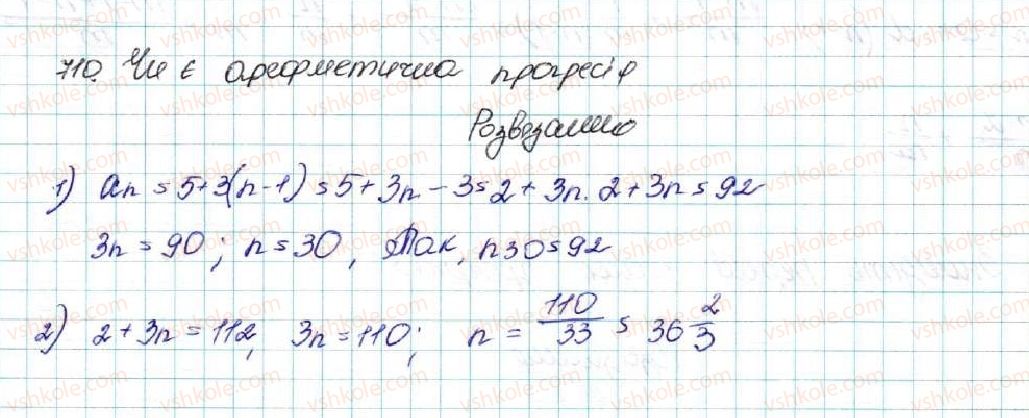 710. Чи є арифметична прогресія
Розв'язання
1) an = 5+3(n-1) = 5+3n-3 = 2+3n. 2+3n = 92
3n = 90; n = 30, Так, n30 = 92
2) 2+3n = 112, 3n = 110; n = 110/33 = 36 2/3